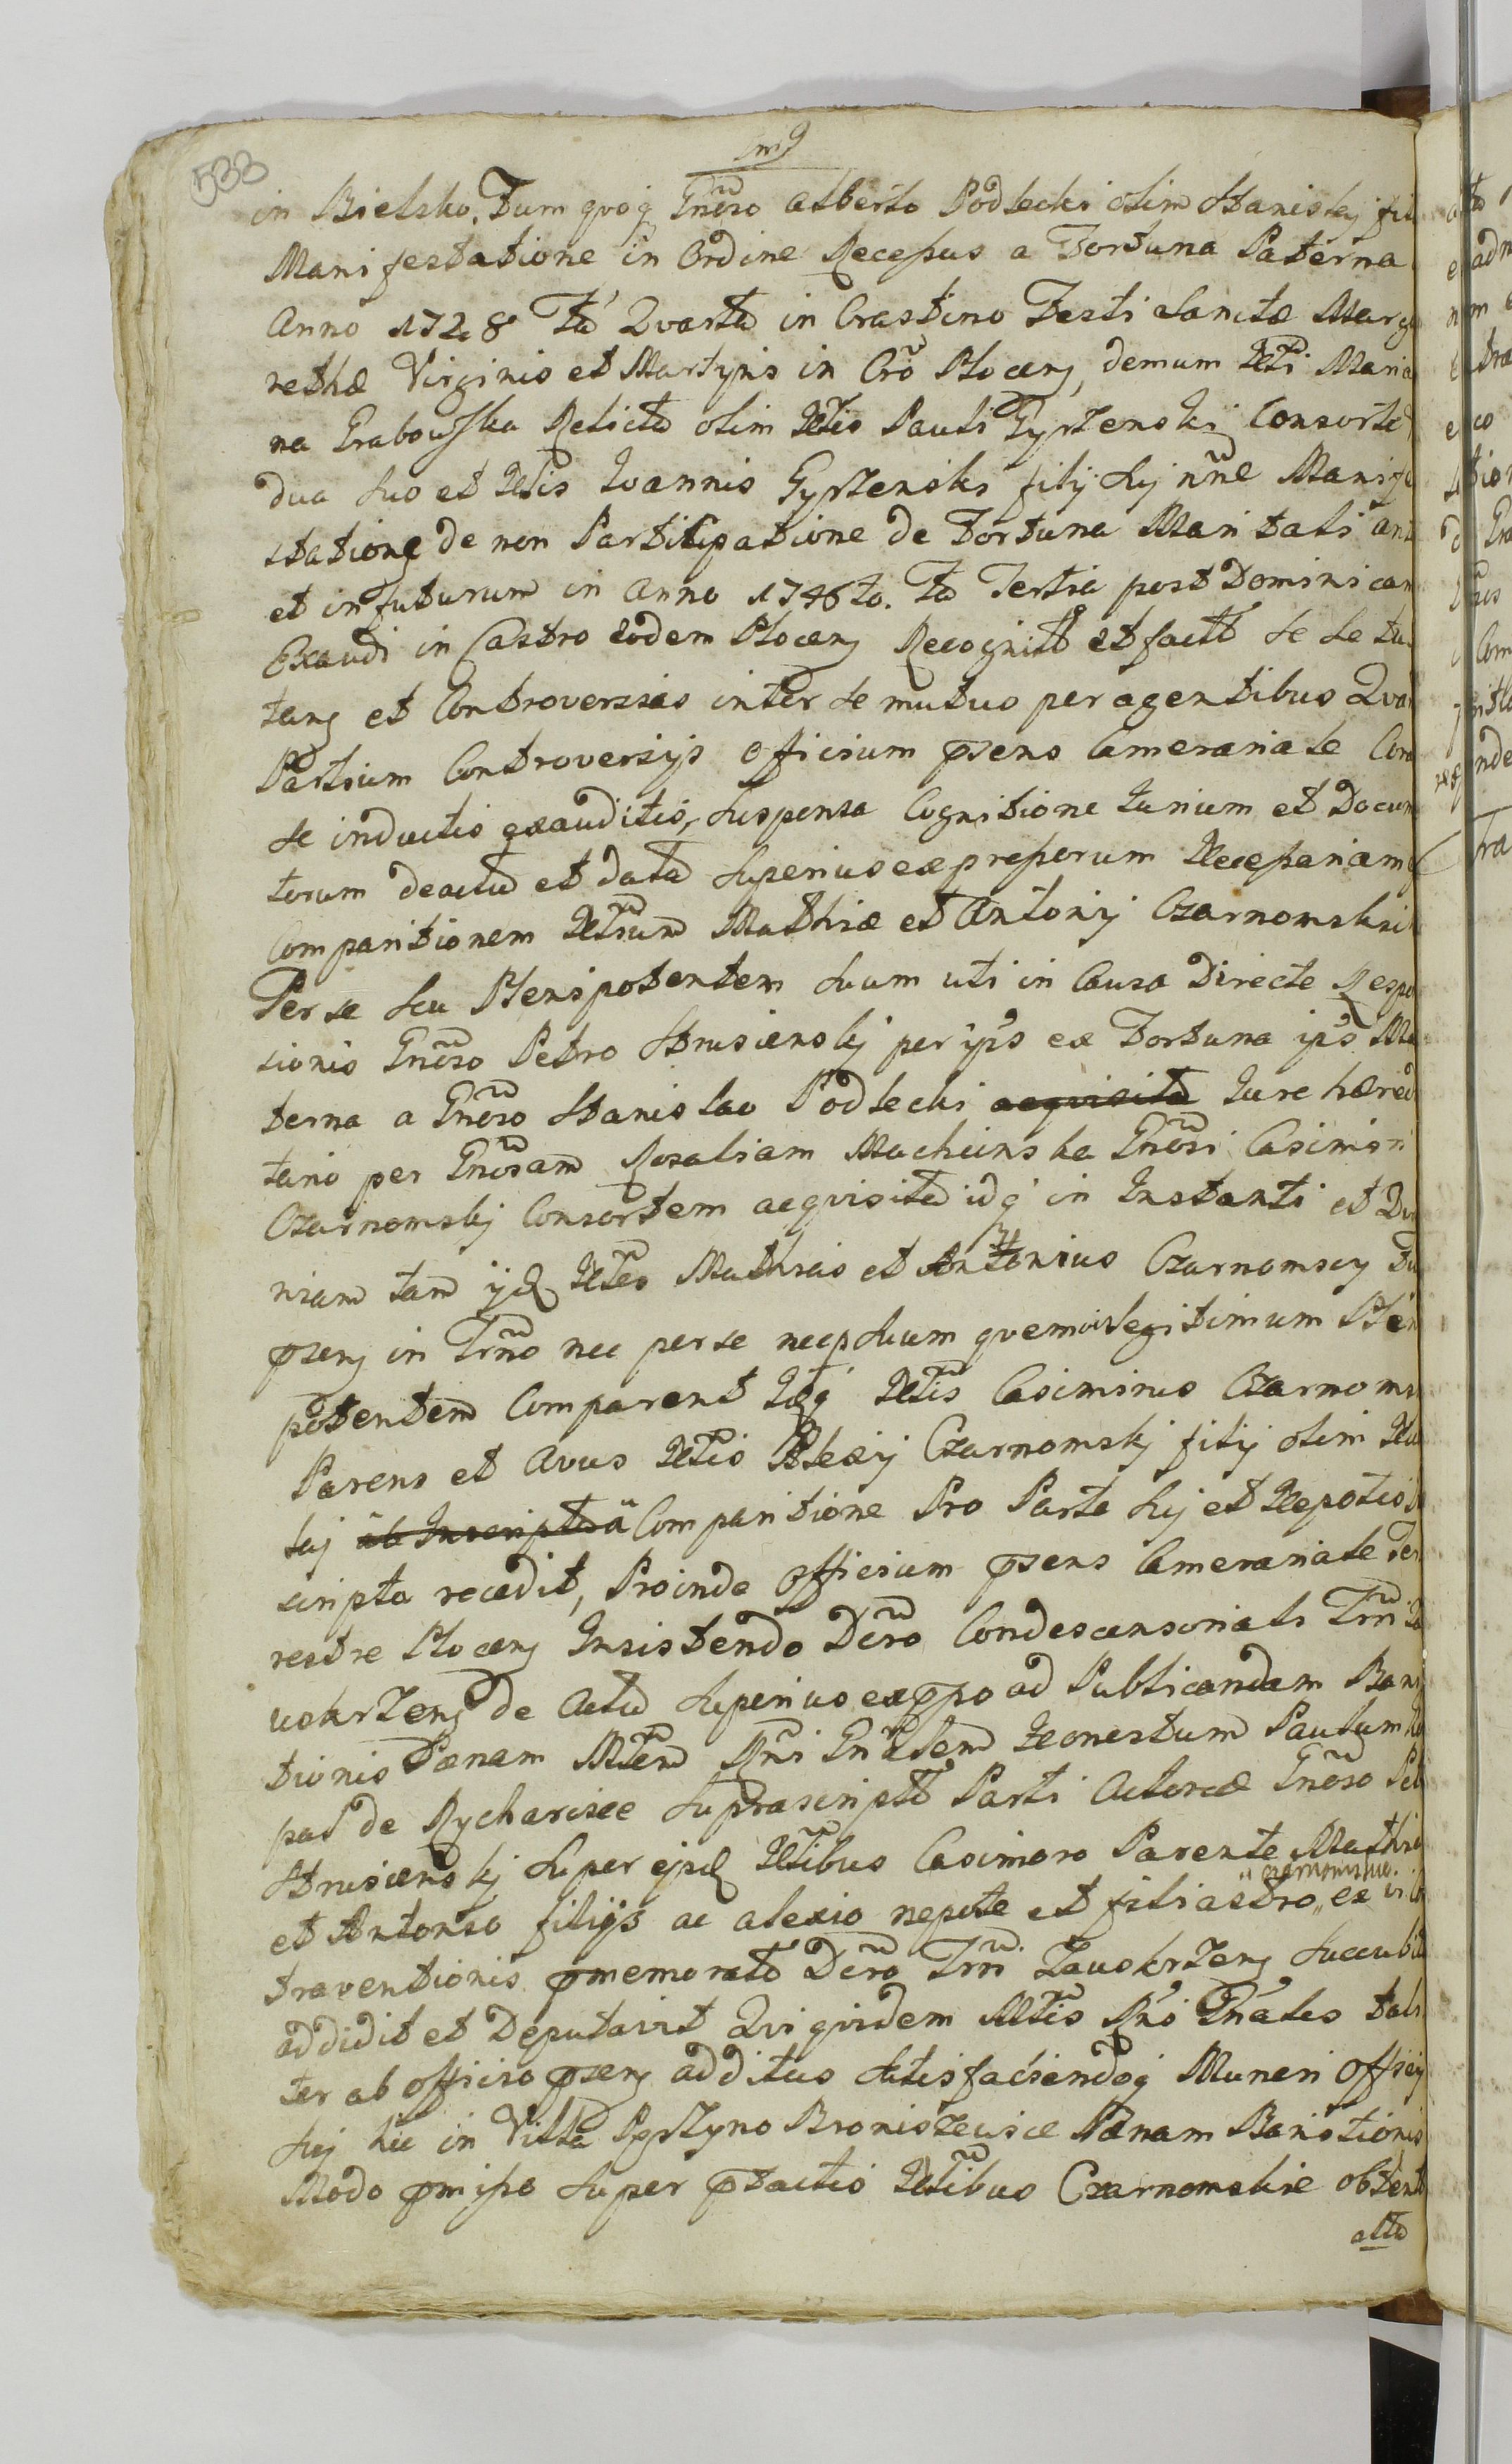 533
in Bielsko, Tum quoq Gnõso Alberto Podlecki olim Stanislaj fil
Manifestatione in Ordine Recessus a Fortuna Paterna
Anno 1728º Fâ Quarta in Crastino Festi Sanctæ Marga
rethæ Virginis et Martyris in Crõ Plocen, demum Nti Maria
na Grabowska Relicta olim Nlis Pauli Gyrzenski Consorte
dua suo et Nlis Ioannis Gyrzenski filij sui nne Manife
statione de non Participatione de Fortuna Maritali
et in futurum in Anno 1746to. Fa Tertia post Dominicam
Exaudi in Castro eodem Plocen Recognit et fact se se tu
tang et Controversias inter se mutuo peragentibus Qua
Partium Controversijs Officium pñs Camerariale Cora
se inductis exauditis, suspensa Cognitione Iurium et Docum
torum deactu et data superius expressorum Necessariam
Comparitionem Nlium Mathiæ et Antonij Czarnomski
Per se seu Plenipotentem suum uti in Causa Directe Respo
sionis Gnõso Petro Strusienskj per ips ex Fortuna ips Ma
terna a Gnõso Stanislao Podlecki acquisita Iure hæredi
tario per Gnõsam Rosaliam Machcinska Gnõsi Casimiri
Czarnomskj Consortem acquisita idq in Instanti et
niam tam ijd Nles Mathias et Antonius Czarnomscy
psens in Trno nec per se nec p suum quemvis legitimum Plen
potentem Comparent Itaq Nlis Casimirus Czarnoms
Parens et Avus Nlis Alexij Czarnomskj filij olim
laj ab Inscripta Comparitione Pro Parte sui et Nepotis
scripta recedit, Proinde Officium psens Camerariale Ter
restre Plocen Insistendo Dcro Condescensoriali Trn Za
wokrzens de Actu superius expsso ad Publicandam Bani
tionis Pœnam Mtem Rni Gnalem Honestum Paulum
pas de Rycharcice suprascript Parti Actoreæ Gnoso Pet
Strusienskj super ejsd Nlibus Casimiro Parente Mathia
et Antonio filijs ac Alexio nepote et filiastro „ ex vi Con
„ Czarnomskie.
traventionis pmemorato Dcro Trn Zawokrzens succubit
addidit et Deputavit Qui quidem Mlis Rni Gnales tali
ter ab officio psens additus satisfaciendoq Muneri Officij
sui hic in Villa Pprzyno Broniszewice Pœnam Banitionis
Modo pmisso super ptactis Nlibus Czarnomskie obtent
alta